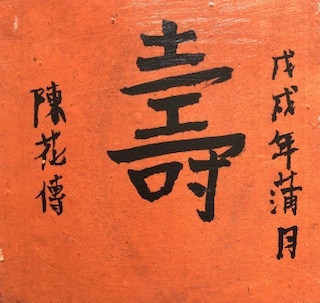 戊戌年蒲月
壽
陳花傳